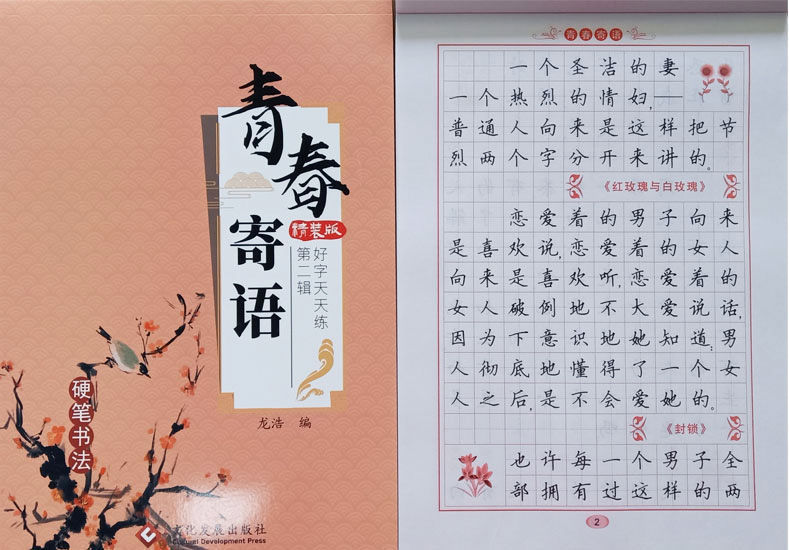 青春
寄语
精装版
好字天天练
第二辑
硬笔书法
龙浩 编
文化发展出版社
Cultural Development Press
青春寄语
一个圣洁的妻
一个热烈的情妇,—
普通人向来是这样把节
烈两个字分开来讲的。
《红玫瑰与白玫瑰》
恋爱着的男子向来
是喜欢说,恋爱着的女人
向来是喜欢听,恋爱着的
女人破例地不大爱说话,
因为下意识地她知道:男
人彻底地懂得了一个女
人之后,是不会爱她的。
《封锁》
也许每一个男子全
部拥有过这样的两
2